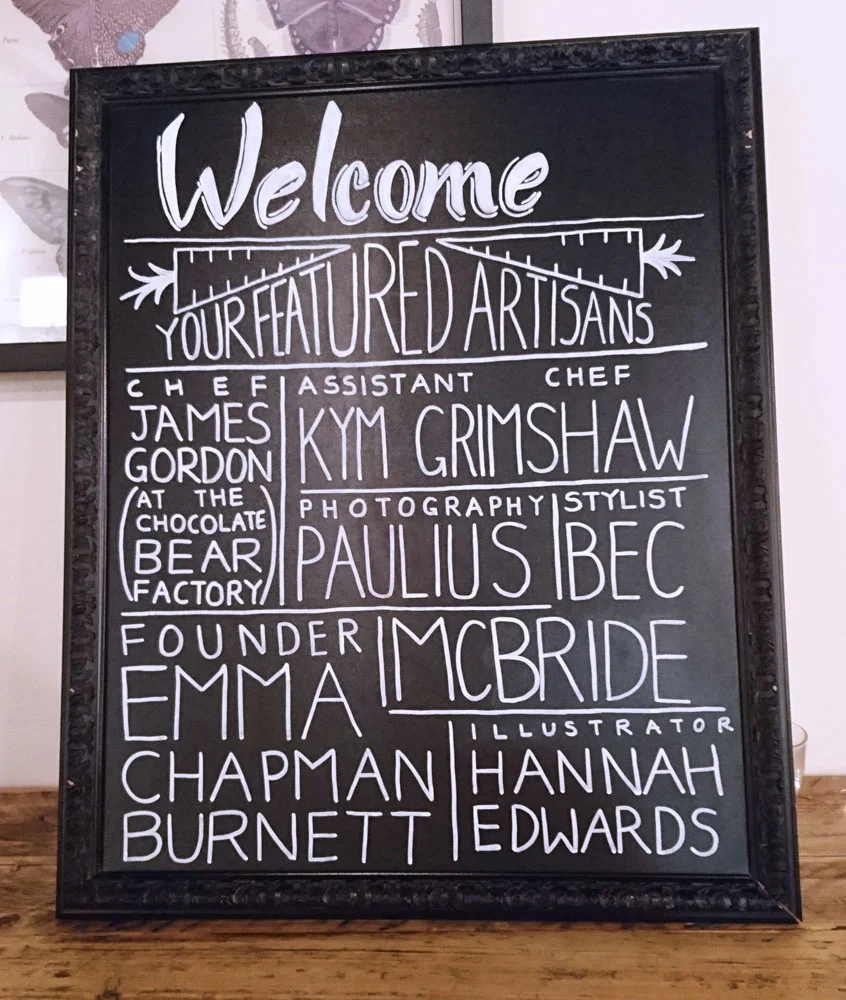 Welcome
YOUR FEATURED ARTISANS
CHEF
JAMES
GORDON
(AT THE
CHOCOLATE
BEAR
FACTORY)
ASSISTANT CHEF
KYM GRIMSHAW
PHOTOGRAPHY
PAULIUS
STYLIST
BEC
MCBRIDE
FOUNDER
EMMA
CHAPMAN
BURNETT
ILLUSTRATOR
HANNAH
EDWARDS